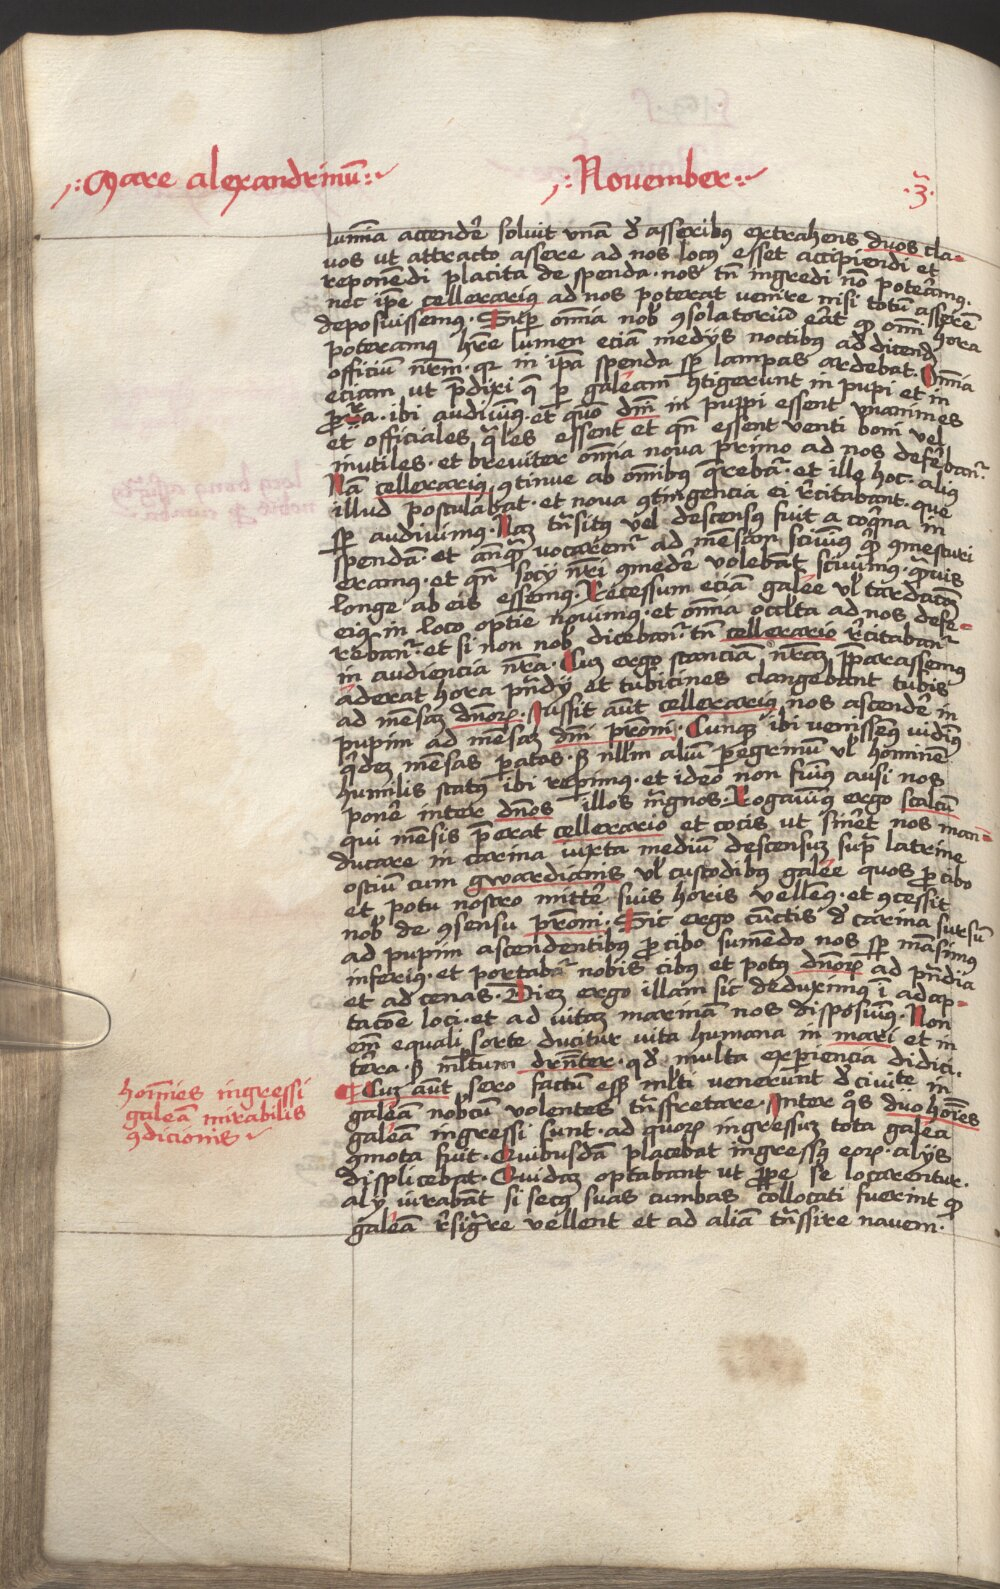 ·:Mare alexandrinū:·
·:November:·
·3·
lumīa accendēr soluit vnā d̄ asseribꝰ extrahens duos cla-
uos ut attracto assere ad nos locꝰ esset accipiendi et
reponēdi placita de spenda· nos tn̄ ingredi nō poterāmꝰ·
nec ip̄e cellerariꝰ ad nos poterat venire nisi totū asserē
deposuissemꝰ· Sup̲ om̄ia nob̄ ꝯsolatoriū erāt qꝫ om̄i hora
poteramꝰ hr̄e lumen eciā medijs noctibꝰ ad dicend̄
officiū nr̄m· qꝛ in ip̄a spenda sp̲ lampas ardebat· Om̄ia
eciam ut p̄dixi q̄ ꝑ galeam ꝯtigerunt in pupi et in
prora· ibi audiuimꝰ· et quō dn̄i in puppi essent vnanimes
et officiales q̄les essent et qn̄ essent venti boni vel
inutiles· et breuiter om̄ia noua primo ad nos deferebanr̄·
Nā cellerariꝰ ꝯtinue ab om̄ibꝰ q̄rebar̄· et ille hoc· aliꝰ
illud postulabat· et noua ꝯtingencia ei rcitabant· que
sp̲ audiuimꝰ· Naꝫ trāsitꝰ vel descensꝰ fuit a coq̄na in
spendā· et anq̄ꝫ vocaremr̄ ad mēsam sciuimꝰ qd̄ ꝯmesturi
eramꝰ· et qn̄ socij nr̄i ꝯmedēr volebāt sciuimꝰ· q̄muis
longe ab eis essemꝰ· Recessum eciā galee vl̄ tardacōꝫ
eiꝰ in loco optīe nouimꝰ· et om̄ia occl̄ta ad nos defe-
rebanr̄· et si non nob̄ dicebanr̄· tn̄ cellerario rcitabanr̄
in audiencia nr̄a· Cuꝫ ergo stanciā nr̄aꝫ p̄parassemꝰ
aderat hora prn̄dij et tubicines clangebant tubis
ad mēsaꝫ dn̄oꝝ· Jussit aūt cellerariꝰ nos ascendēr in
pupim ad mēsaꝫ dn̄i pr̄oni· Cunqꝫ ibi venissemꝰ vidimꝰ
q̄deꝫ mēsas paratas· sꝫ nllm̄ aliū peregrinū vl̄ hominē
humilis statꝰ ibi reperimꝰ· et ideo non fuimꝰ ausi nos
ponēr inter dn̄os illos mḡnos· Rogauimꝰ ergo scalcū
qui mēsis p̄erat cellerario et cocis ut sinēr̄t nos man-
ducare in carina iuxta mediū descensuꝫ supra latrine
ostiū cum gwardianis vl̄ custodibꝰ galee quos ꝓ cibo
et potu nostro mittēr suis horis vellemꝰ· et ꝯcessit
nob̄ de ꝯsensu pr̄oni· Sic ergo cunctis d̄ carina sursū
ad pupim ascendentibꝰ ꝓ cibo sumēdo nos sp̲ māsimꝰ
inferiꝰ· et portabar̄ nobis cibꝰ et potꝰ dn̄oꝝ ad prn̄dia
et ad cenas· Dieꝫ ergo illam sic deduximꝰ ī adap-
tacōe loci· et ad vitaꝫ marinā nos disposuimꝰ· Non
em̄ equali sorte ducitur vita humana in mari et in
tēra· sꝫ ml̄tum drn̄ter· qd̄ multa experiencia didici·
¶ Cuꝫ aūt sero factū essꝫ ml̄ti venerunt d̄ ciuite in
galeā nobcū volentes trāsfretare· Inter qͦs duo hoīes
galeā ingressi sunt· ad quoꝝ ingressuꝫ tota galea
ꝯmota fuit· Quibusdā placebat ingressꝰ eoꝝ· alijs
displicebat· Quidaꝫ optabant ut ꝓpe se locarentur·
alij iurabāt si secꝰ suas cumbas collocati fuerint qꝫ
galeā rsignare vellent et ad aliā trāssire nauem·
hoīnes ingressi
galeā mirabilis
ꝯdicionis